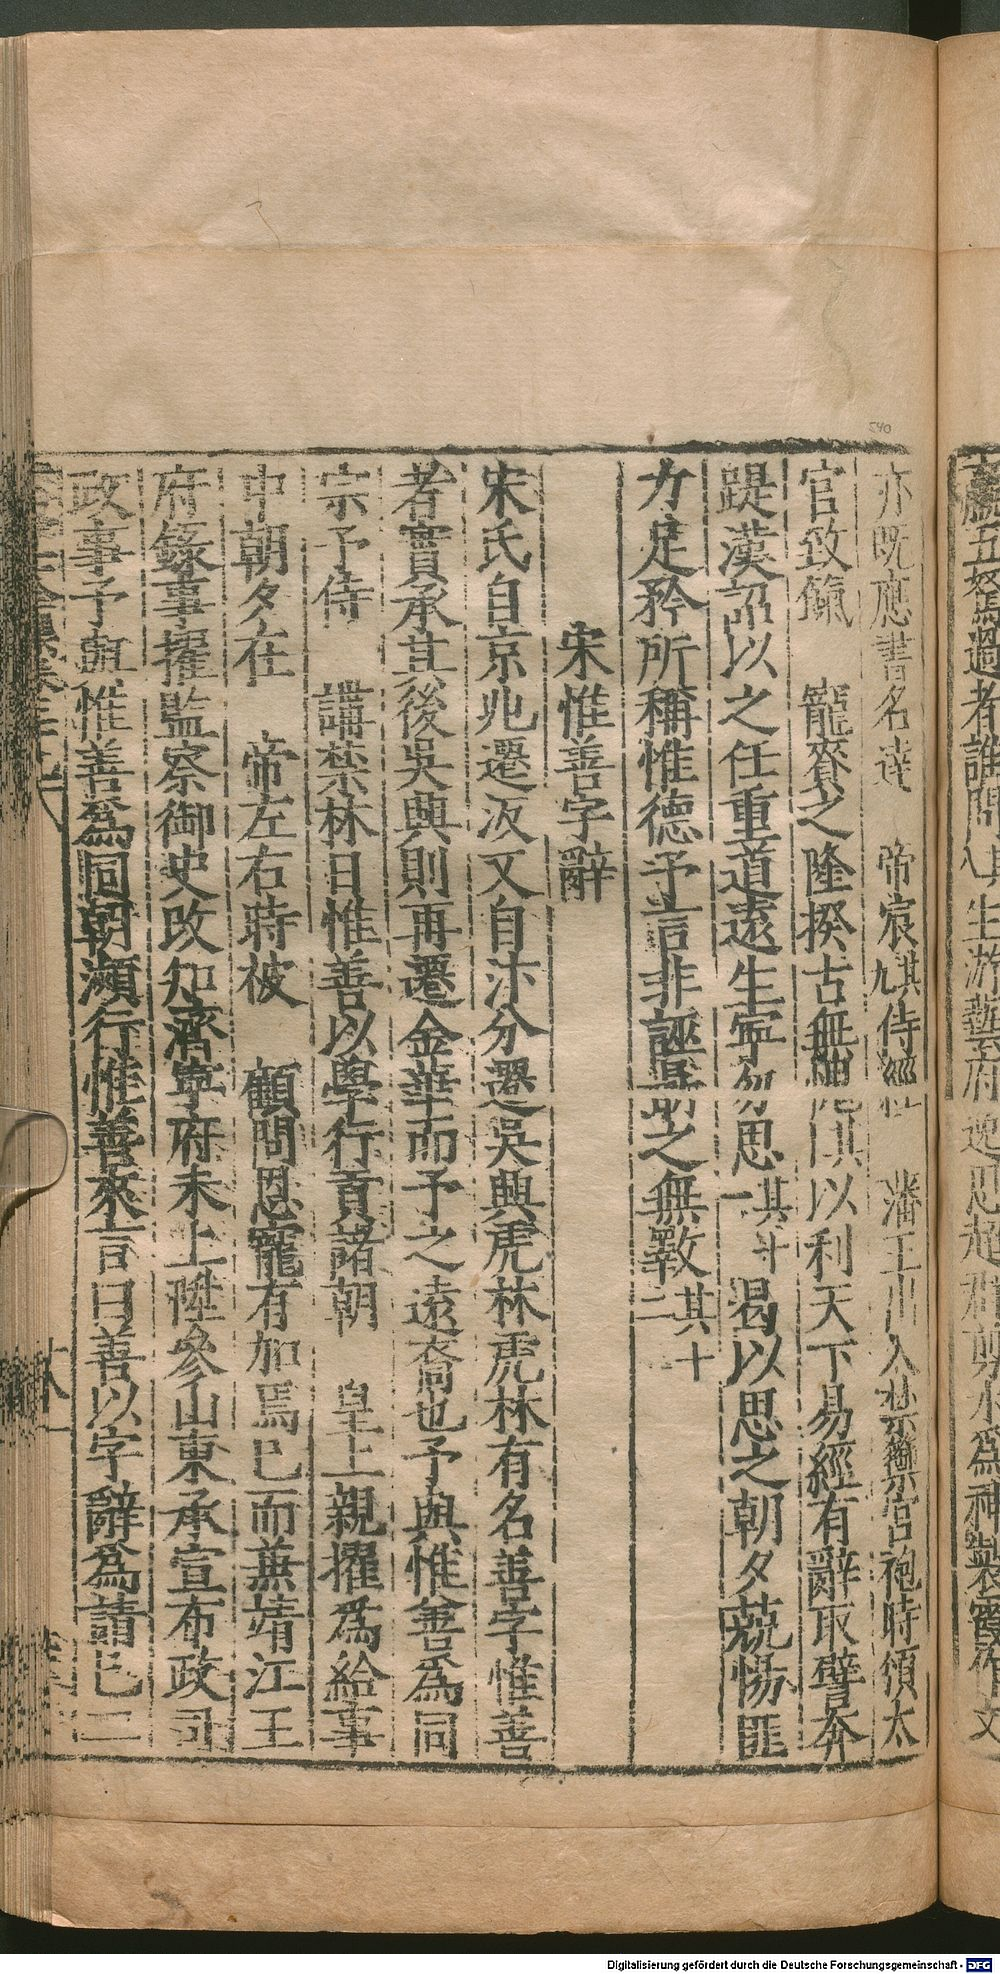 亦既應書名達　帝宸其九侍經　藩王出入禁籞宮袍時頒太
官致餼　寵賚之隆揆古無　其以利天下易經有辭取譬奔
踶漢詔以之任重道遠生寧勿思其十一曷以思之朝夕兢惕匪
力是矜所稱惟德予言非誣　之無斁其十二
宋惟善字辭
宋氏自京兆遷汳又自汴分遷吳興虎林虎林有名善字惟善
者實承其後吳興則再遷金華而予之遠裔也予與惟善為同
宗予侍　講禁林日惟善以學行貢諸朝　皇上親擢為給事
中朝夕在　帝左右時被　顧問恩寵有加焉已而兼靖江王
府錄事擢監察御史改知濟寧府未上陞參山東承宣布政司
政事予與惟善為同朝瀕行惟善來言曰善以字辭為請已二
五駑過者誰問其八生游藝府　思超群剪水為神製霞作文
540
Digitalisierung gefördert durch die Deutsche Forschungsgemeinschaft - DFG